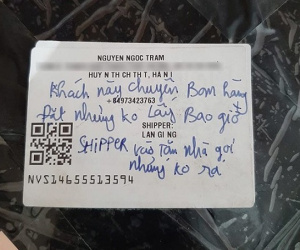 NGUYEN NGOC TRAM
HUYN TH CH TH T, HÀ N I
Khách này chuyên Bom hàng
+84973423763
Đặt nhưng ko lấy Bao giờ
SHIPPER:
LAN GI NG
SHIPPER vào tận nhà gọi
nhưng ko ra
NVS14655513594